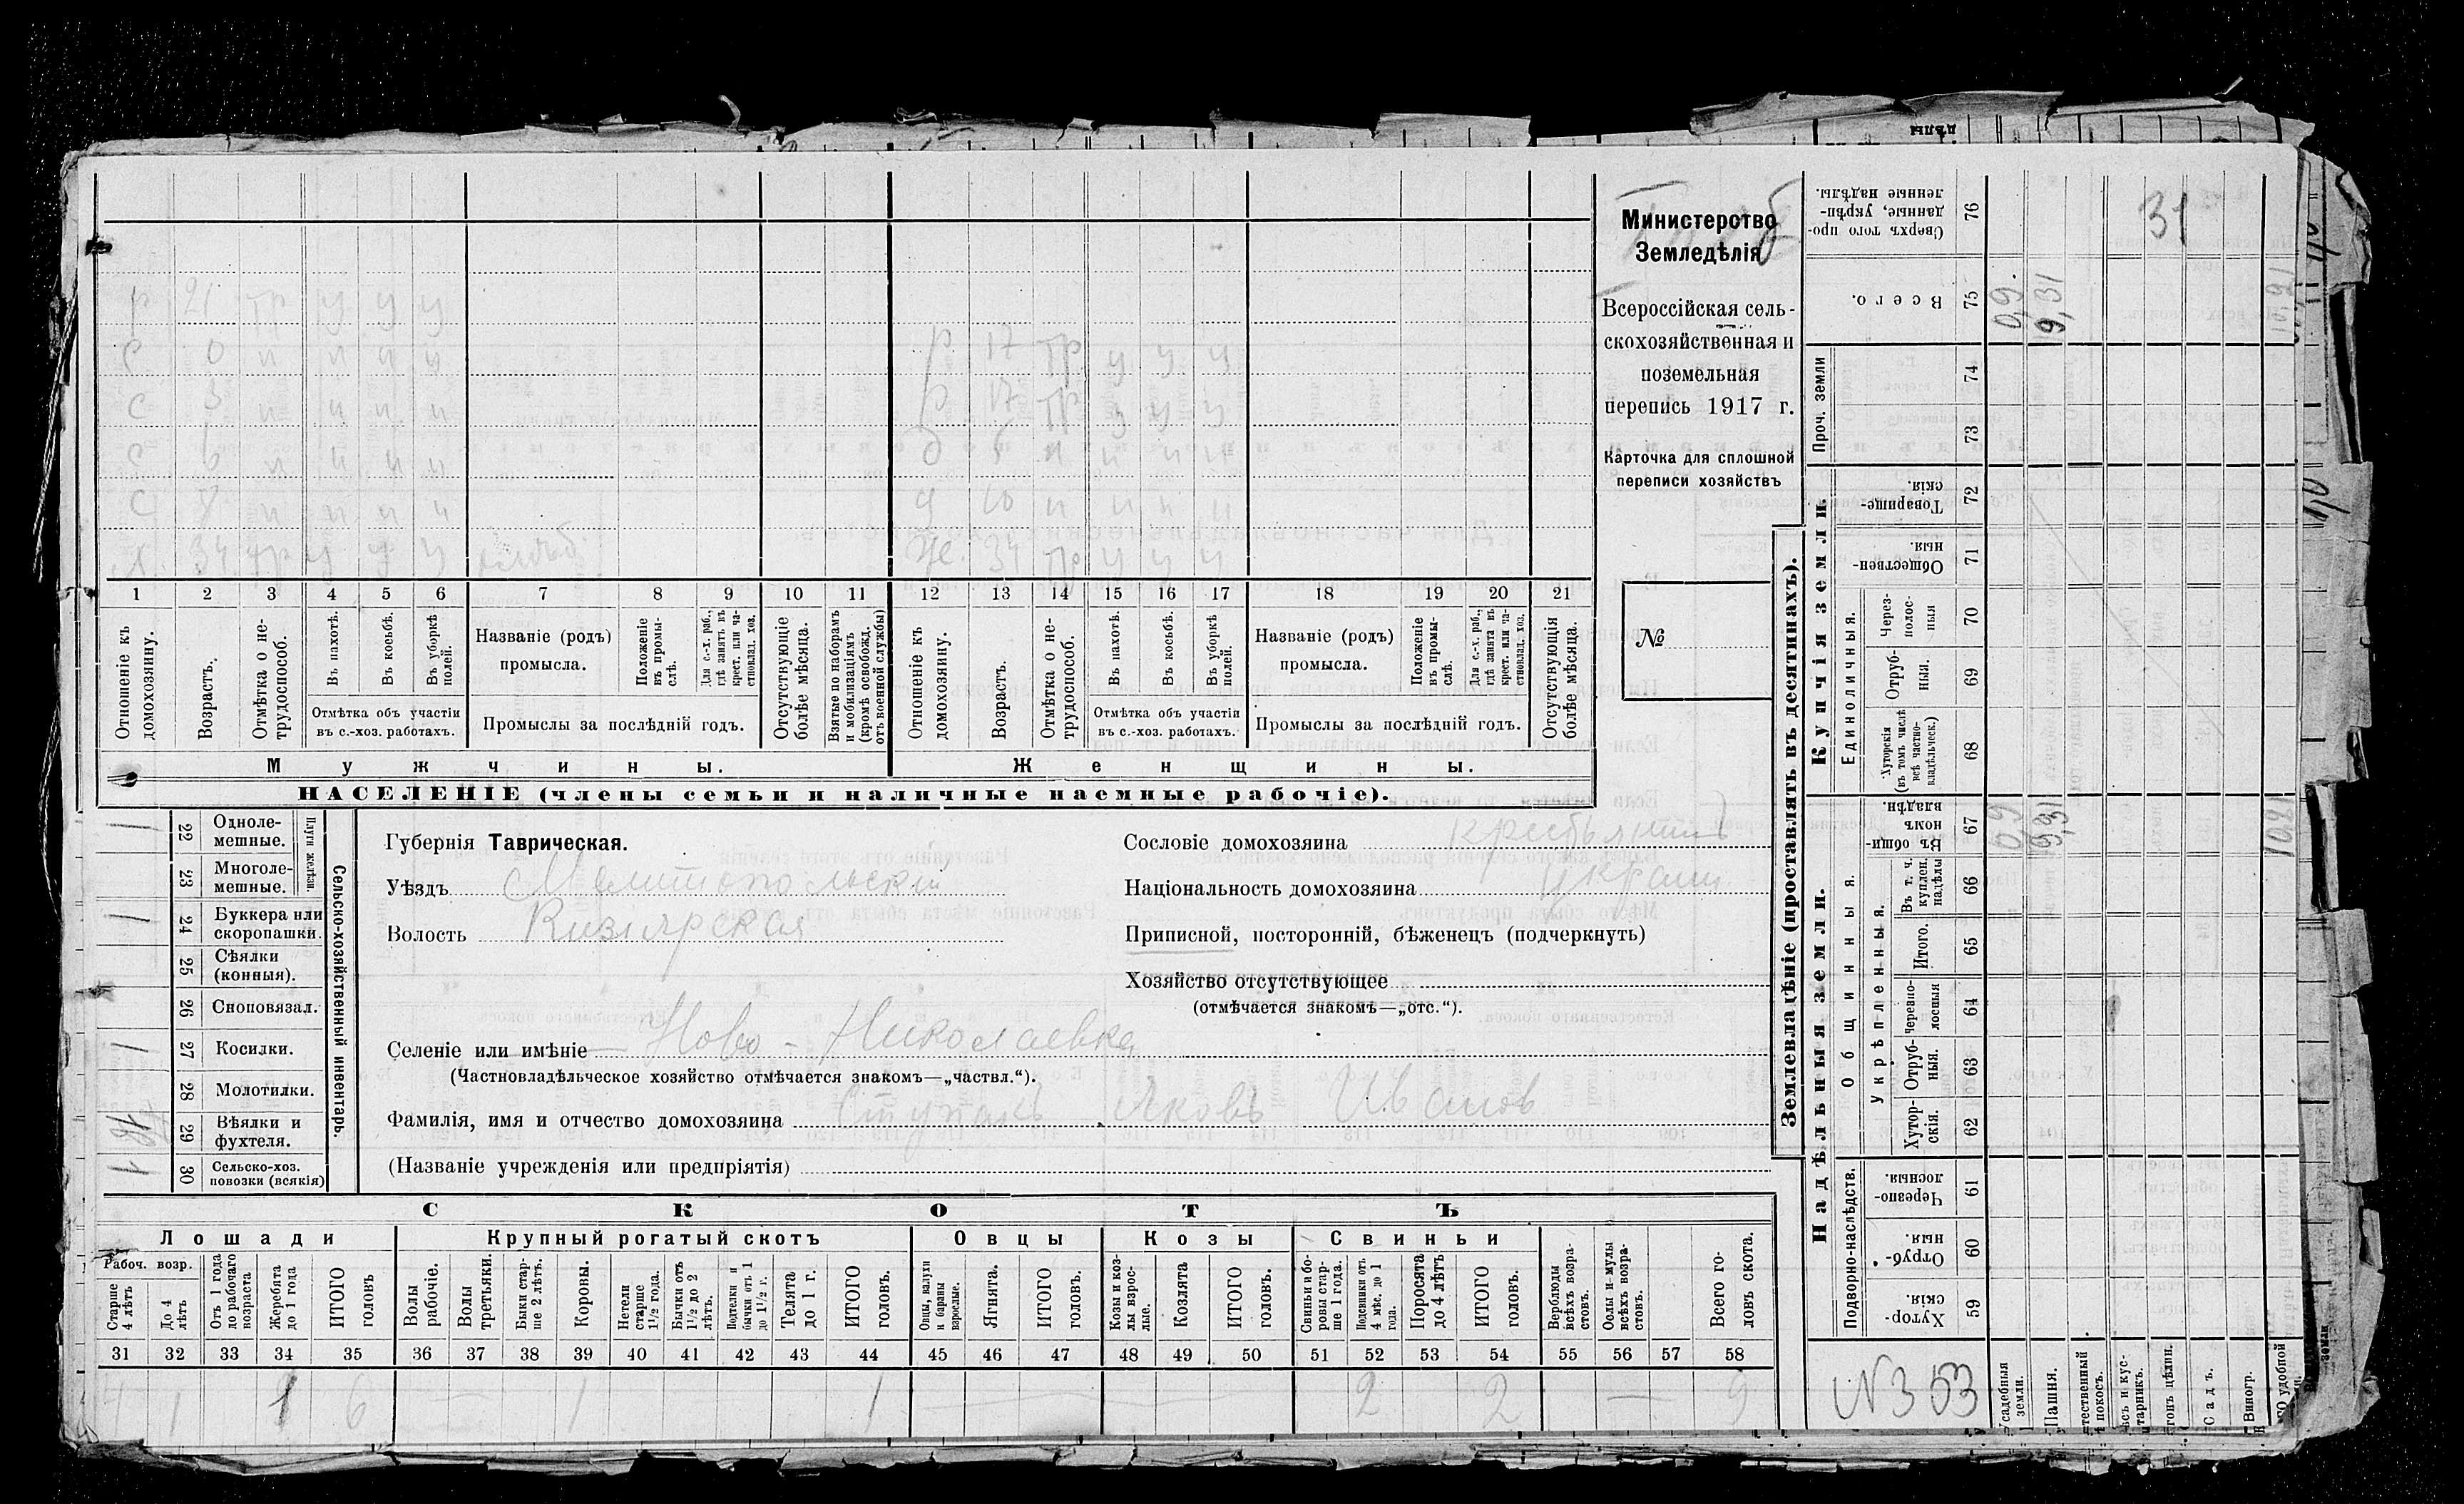 Министерство
Земледѣлія
Всероссійская сель-
скохозяйственная и
поземельная
перепись 1917 г.
Карточка для сплошной
переписи хозяйствъ
№
р 21 тр у у у
с 0 н н н н
р 17 тр у у у
с 3 н н н н
р 17 тр у у у
с 6 н н н н
с 8 н н н н
д 10 н н н н
х. 34 тр у у у
ж. 34 тр у у у
1 2 3 4 5 6 7 8 9 10 11 12 13 14 15 16 17 18 19 20 21
Отношеніе къ домохозяину.
Возрастъ.
Отмѣтка о не-трудоспособ.
Въ пахотѣ.
Въ косьбѣ.
Въ уборкѣ полей.
Отмѣтка объ участіи въ с.-хоз. работахъ.
Названіе (родъ) промысла.
Положеніе въ промы-слѣ.
Для с.-х. раб., гдѣ занятъ въ крест. или ча-стновлад. хоз.
Промыслы за послѣдній годъ.
Отсутствующіе болѣе мѣсяца.
Взятые по наборамъ и мобилизаціямъ (кромѣ освобожд. отъ военной службы)
Отношеніе къ домохозяину.
Возрастъ.
Отмѣтка о не-трудоспособ.
Въ пахотѣ.
Въ косьбѣ.
Въ уборкѣ полей.
Отмѣтка объ участіи въ с.-хоз. работахъ.
Названіе (родъ) промысла.
Положеніе въ промы-слѣ.
Для с.-х. раб., гдѣ занята въ крест. или ча-стновлад. хоз.
Промыслы за послѣдній годъ.
Отсутствующія болѣе мѣсяца.
Мужчины. Женщины.
НАСЕЛЕНІЕ (члены семьи и наличные наемные рабочіе).
Сельско-хозяйственный инвентарь.
Плуги желѣзн.
22 Одноле-мешные. 1
23 Многоле-мешные.
24 Буккера или скоропашки. 1
25 Сѣялки (конныя).
26 Сноповязал.
27 Косилки. 1
28 Молотилки.
29 Вѣялки и фухтеля.
30 Сельско-хоз. повозки (всякія) 1
Губернія Таврическая.
Уѣздъ Мелитопольскій
Волость Кизіярская
Сословіе домохозяина крестьянинъ
Національность домохозяина украин
Приписной, посторонній, бѣженецъ (подчеркнуть)
Хозяйство отсутствующее
(отмѣчается знакомъ—„отс.“).
Селеніе или имѣніе Ново-Николаевка
(Частновладѣльческое хозяйство отмѣчается знакомъ—„частвл.“).
Фамилія, имя и отчество домохозяина Ступакъ Яковъ Иванов
(Названіе учрежденія или предпріятія)
СКОТЪ
Лошади Крупный рогатый скотъ Овцы Козы Свиньи
Рабоч. возр.
Старше 4 лѣтъ
До 4 лѣтъ
Отъ 1 года до рабочаго возраста
Жеребята до 1 года
ИТОГО головъ
Волы рабочіе.
Волы третьяки.
Быки стар-ше 2 лѣтъ.
Коровы.
Нетели старше 1½ года.
Бычки отъ 1½ до 2 лѣтъ.
Подтелки и бычки отъ 1 до 1½ г.
Телята до 1 г.
ИТОГО головъ.
Овцы, валухи и бараны взрослые.
Ягнята.
ИТОГО головъ.
Козы и коз-лы взрос-лые.
Козлята
ИТОГО головъ.
Свиньи и бо-ровы стар-ше 1 года.
Подсвинки отъ 4 мѣс. до 1 года.
Поросята до 4 лѣтъ
ИТОГО головъ.
Верблюды всѣхъ возра-стовъ.
Ослы и мулы всѣхъ возра-стовъ.
Всего го-ловъ скота.
31 32 33 34 35 36 37 38 39 40 41 42 43 44 45 46 47 48 49 50 51 52 53 54 55 56 57 58
4 1 1 6 — 1 1 — — 2 2 — 9
Землевладѣніе (проставлять въ десятинахъ).
Купчія земли.
Надѣльныя земли.
Сверхъ того про-данные, укрѣп-ленные надѣлы. 76
Всего. 75
Проч. земли 74 73
Товарище-скія. 72
Обществен-ныя. 71
Единоличныя.
Через-полос-ныя 70
Отруб-ныя. 69
Хуторскія (въ томъ числѣ всѣ частно-владѣльческ.) 68
Общинныя.
Въ общи-номъ владѣн. 67
Укрѣпленныя.
Въ т. ч. куплен. надѣлы 66
Итого. 65
Черезпо-лосныя 64
Отруб-ныя. 63
Хутор-скія. 62
Подворно-наслѣдств.
Черезпо-лосныя 61
Отруб-ныя. 60
Хутор-скія. 59
31
0,9
9,31
10,21
0,9
9,31
10,21
N 353
Усадебныя земли.
Пашня.
Садъ.
Виногр.